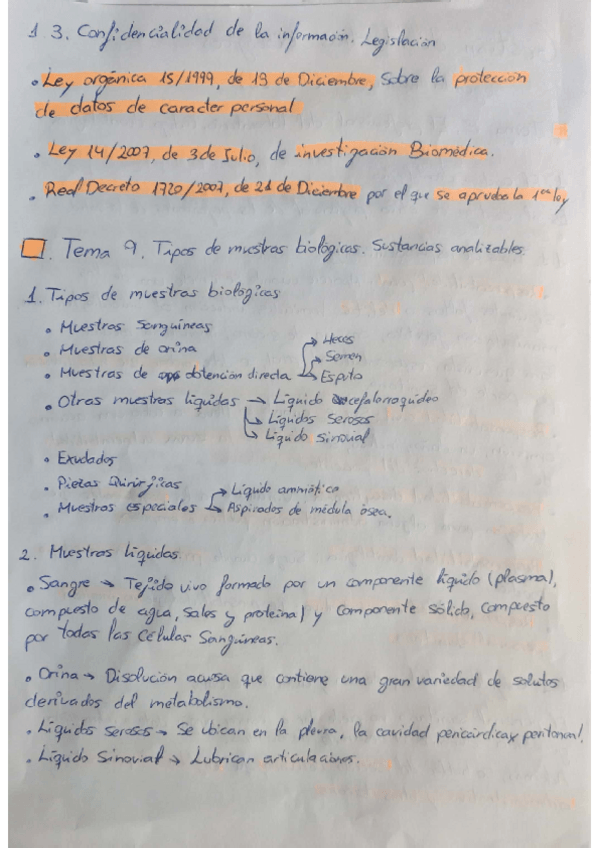 1.3. Confidencialidad de la información. Legislación
• Ley orgánica 15/1999, de 13 de Diciembre, sobre la protección
de datos de caracter personal
• Ley 14/2007, de 3 de Julio, de investigación Biomédica.
• Real Decreto 1720/2007, de 21 de Diciembre por el que se aprueba la 1ª ley
1. Tema 9. Tipos de muestras biológicas. Sustancias analizables.
1. Tipos de muestras biológicas
• Muestras Sanguineas
• Muestras de orina
• Muestras de obtención directa → Heces
→ Semen
→ Esputo
• Otras muestras liquidas → Liquido cefalorraquideo
→ Liquidos serosos
→ Liquido sinovial
• Exudados
• Piezas Quirúrjicas
• Muestras especiales → Liquido amniótico
→ Aspirados de médula ósea.
2. Muestras líquidas.
• Sangre → Tejido vivo formado por un componente líquido (plasma),
compuesto de agua, sales y proteina) y componente sólido, compuesto
por todas las Células Sanguíneas.
• Orina → Disolución acuosa que contiene una gran variedad de solutos
derivados del metabolismo.
• Líquidos serosos → Se ubican en la pleura, la cavidad pericárdica y peritoneal.
• Líquido Sinovial → Lubrican articulaciones.